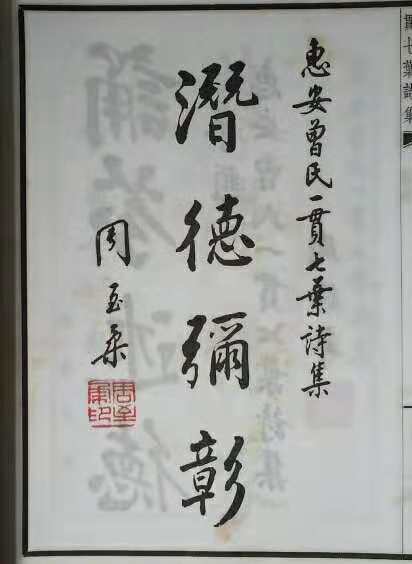 七葉詩集
惠安曾氏一貫七葉詩集
潛德彌彰
周至柔
周至柔印